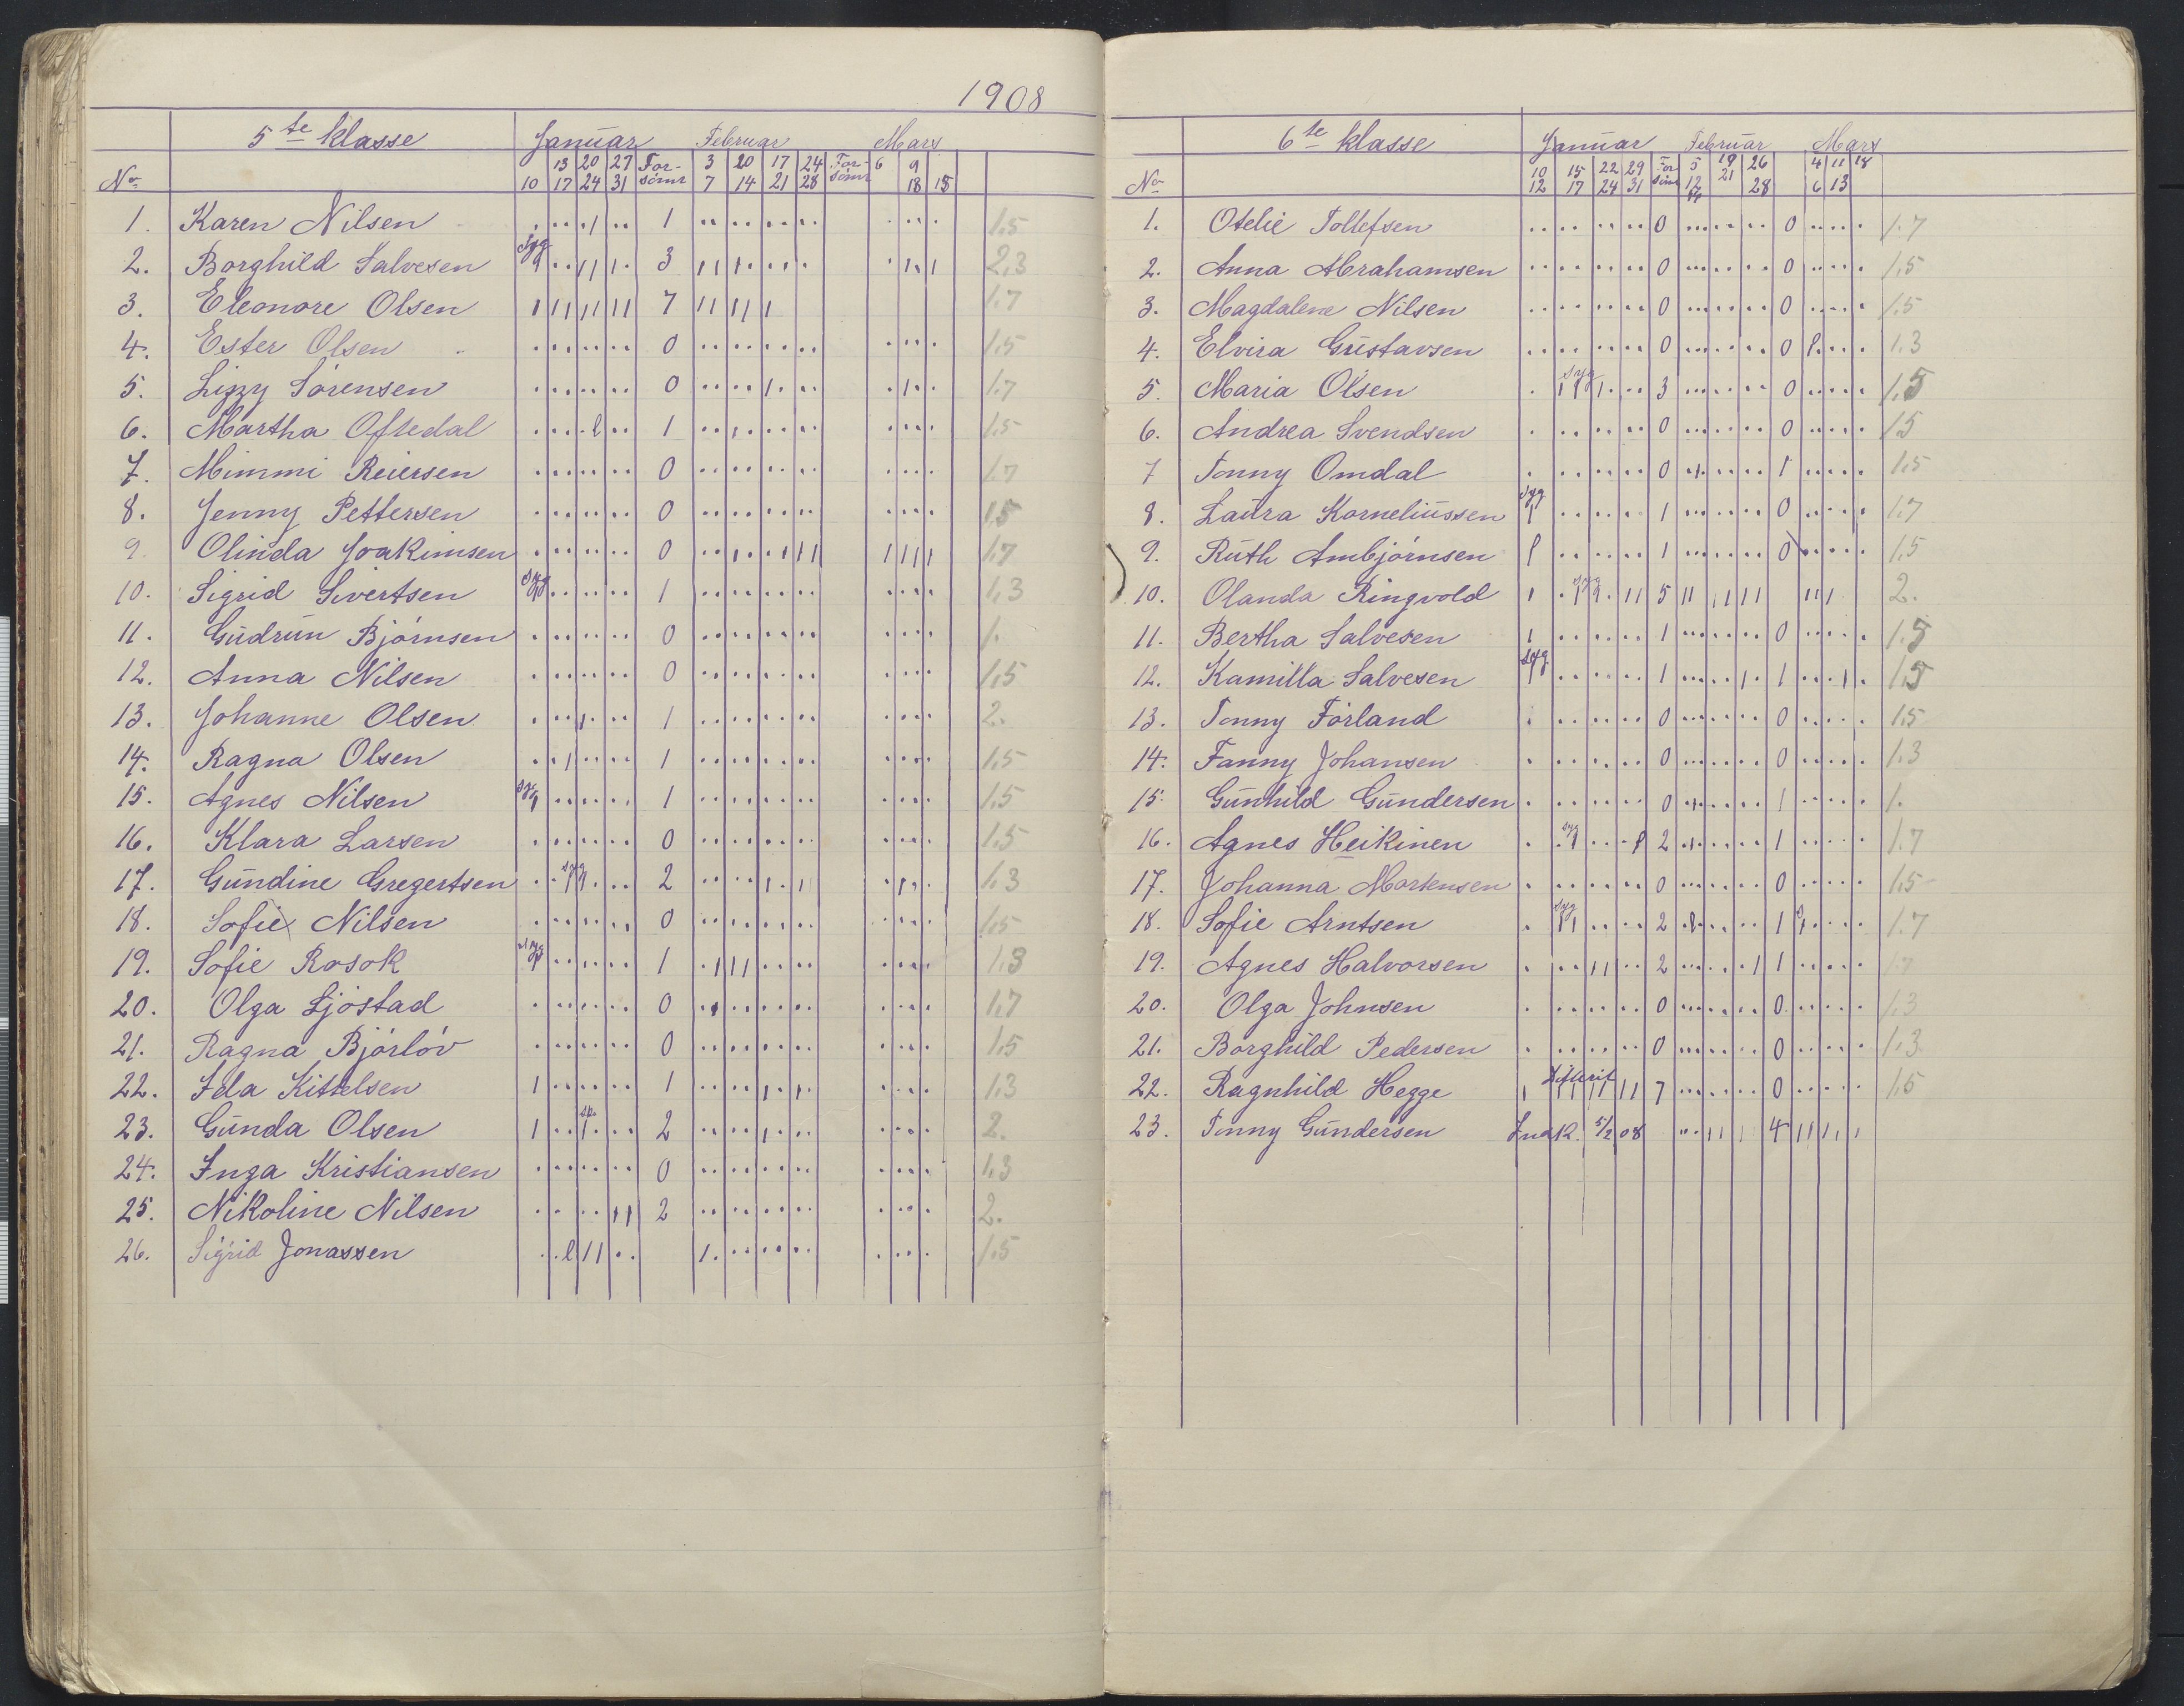 1908
5te klasse Januar Februar Mars
13 20 27 For- 3 20 17 24 For- 6 9
No 10 17 24 31 sömt 7 14 21 28 sömt 18 15
1. Karen Nilsen 1 1.5
2. Borghild Salvesen syg 3 2,3
3. Eleonore Olsen 7 1.7
4. Ester Olsen 0 1.5
5. Lizzy Sörensen 0 1.7
6. Martha Oftedal 1 1.5
7. Mimmi Reiersen 0 1.7
8. Jenny Pettersen 0 1.5
9. Olinda Joakimsen 0 1.7
10. Sigrid Sivertsen syg 1 1.3
11. Gudrun Björnsen 0 1.
12. Anna Nilsen 0 1.5
13. Johanne Olsen 1 2.
14. Ragna Olsen 1 1.5
15. Agnes Nilsen syg 1 1.5
16. Klara Larsen 0 1.5
17. Gundine Gregertsen syg 2 1.3
18. Sofie Nilsen 0 1.5
19. Sofie Rosok syg 1 1.3
20. Olga Ljöstad 0 1.7
21. Ragna Björlöv 0 1.5
22. Ida Kittelsen 1 1.3
23. Gunda Olsen 2 2.
24. Inga Kristiansen 0 1.3
25. Nikoline Nilsen 2 2.
26. Sigrid Jonassen 1.5
6te klasse Januar Februar Mars
10 15 22 29 For 5 19 26 4 11 18
No 12 17 24 31 sömt 12 21 28 6 13
1. Otelie Tollefsen 0 0 1.7
2. Anna Abrahamsen 0 0 1.5
3. Magdalene Nilsen 0 0 1.5
4. Elvira Gustavsen 0 0 1.3
5. Maria Olsen syg 3 0 1.5
6. Andrea Svendsen 0 0 1.5
7 Tonny Omdal 0 1 1.5
8. Laura Korneliussen syg 1 0 1.7
9. Ruth Ambjörnsen 1 0 1.5
10. Olanda Ringvold syg 5 2.
11. Bertha Salvesen 1 0 1.5
12. Kamilla Salvesen syg 1 1 1.5
13. Tonny Förland 0 0 1.5
14. Fanny Johansen 0 0 1.3
15. Gunhild Gundersen 0 1 1.
16. Agnes Heikinen syg 2 1 1.7
17. Johanna Mortensen 0 0 1.5
18. Sofie Arntsen syg 2 1 1.7
19. Agnes Halvorsen 2 1 1.7
20. Olga Johnsen 0 0 1.3
21. Borghild Pedersen 0 0 1.3
22. Ragnhild Hegge Difterit 7 0 1.5
23. Tonny Gundersen Indk. 5/2 08 4